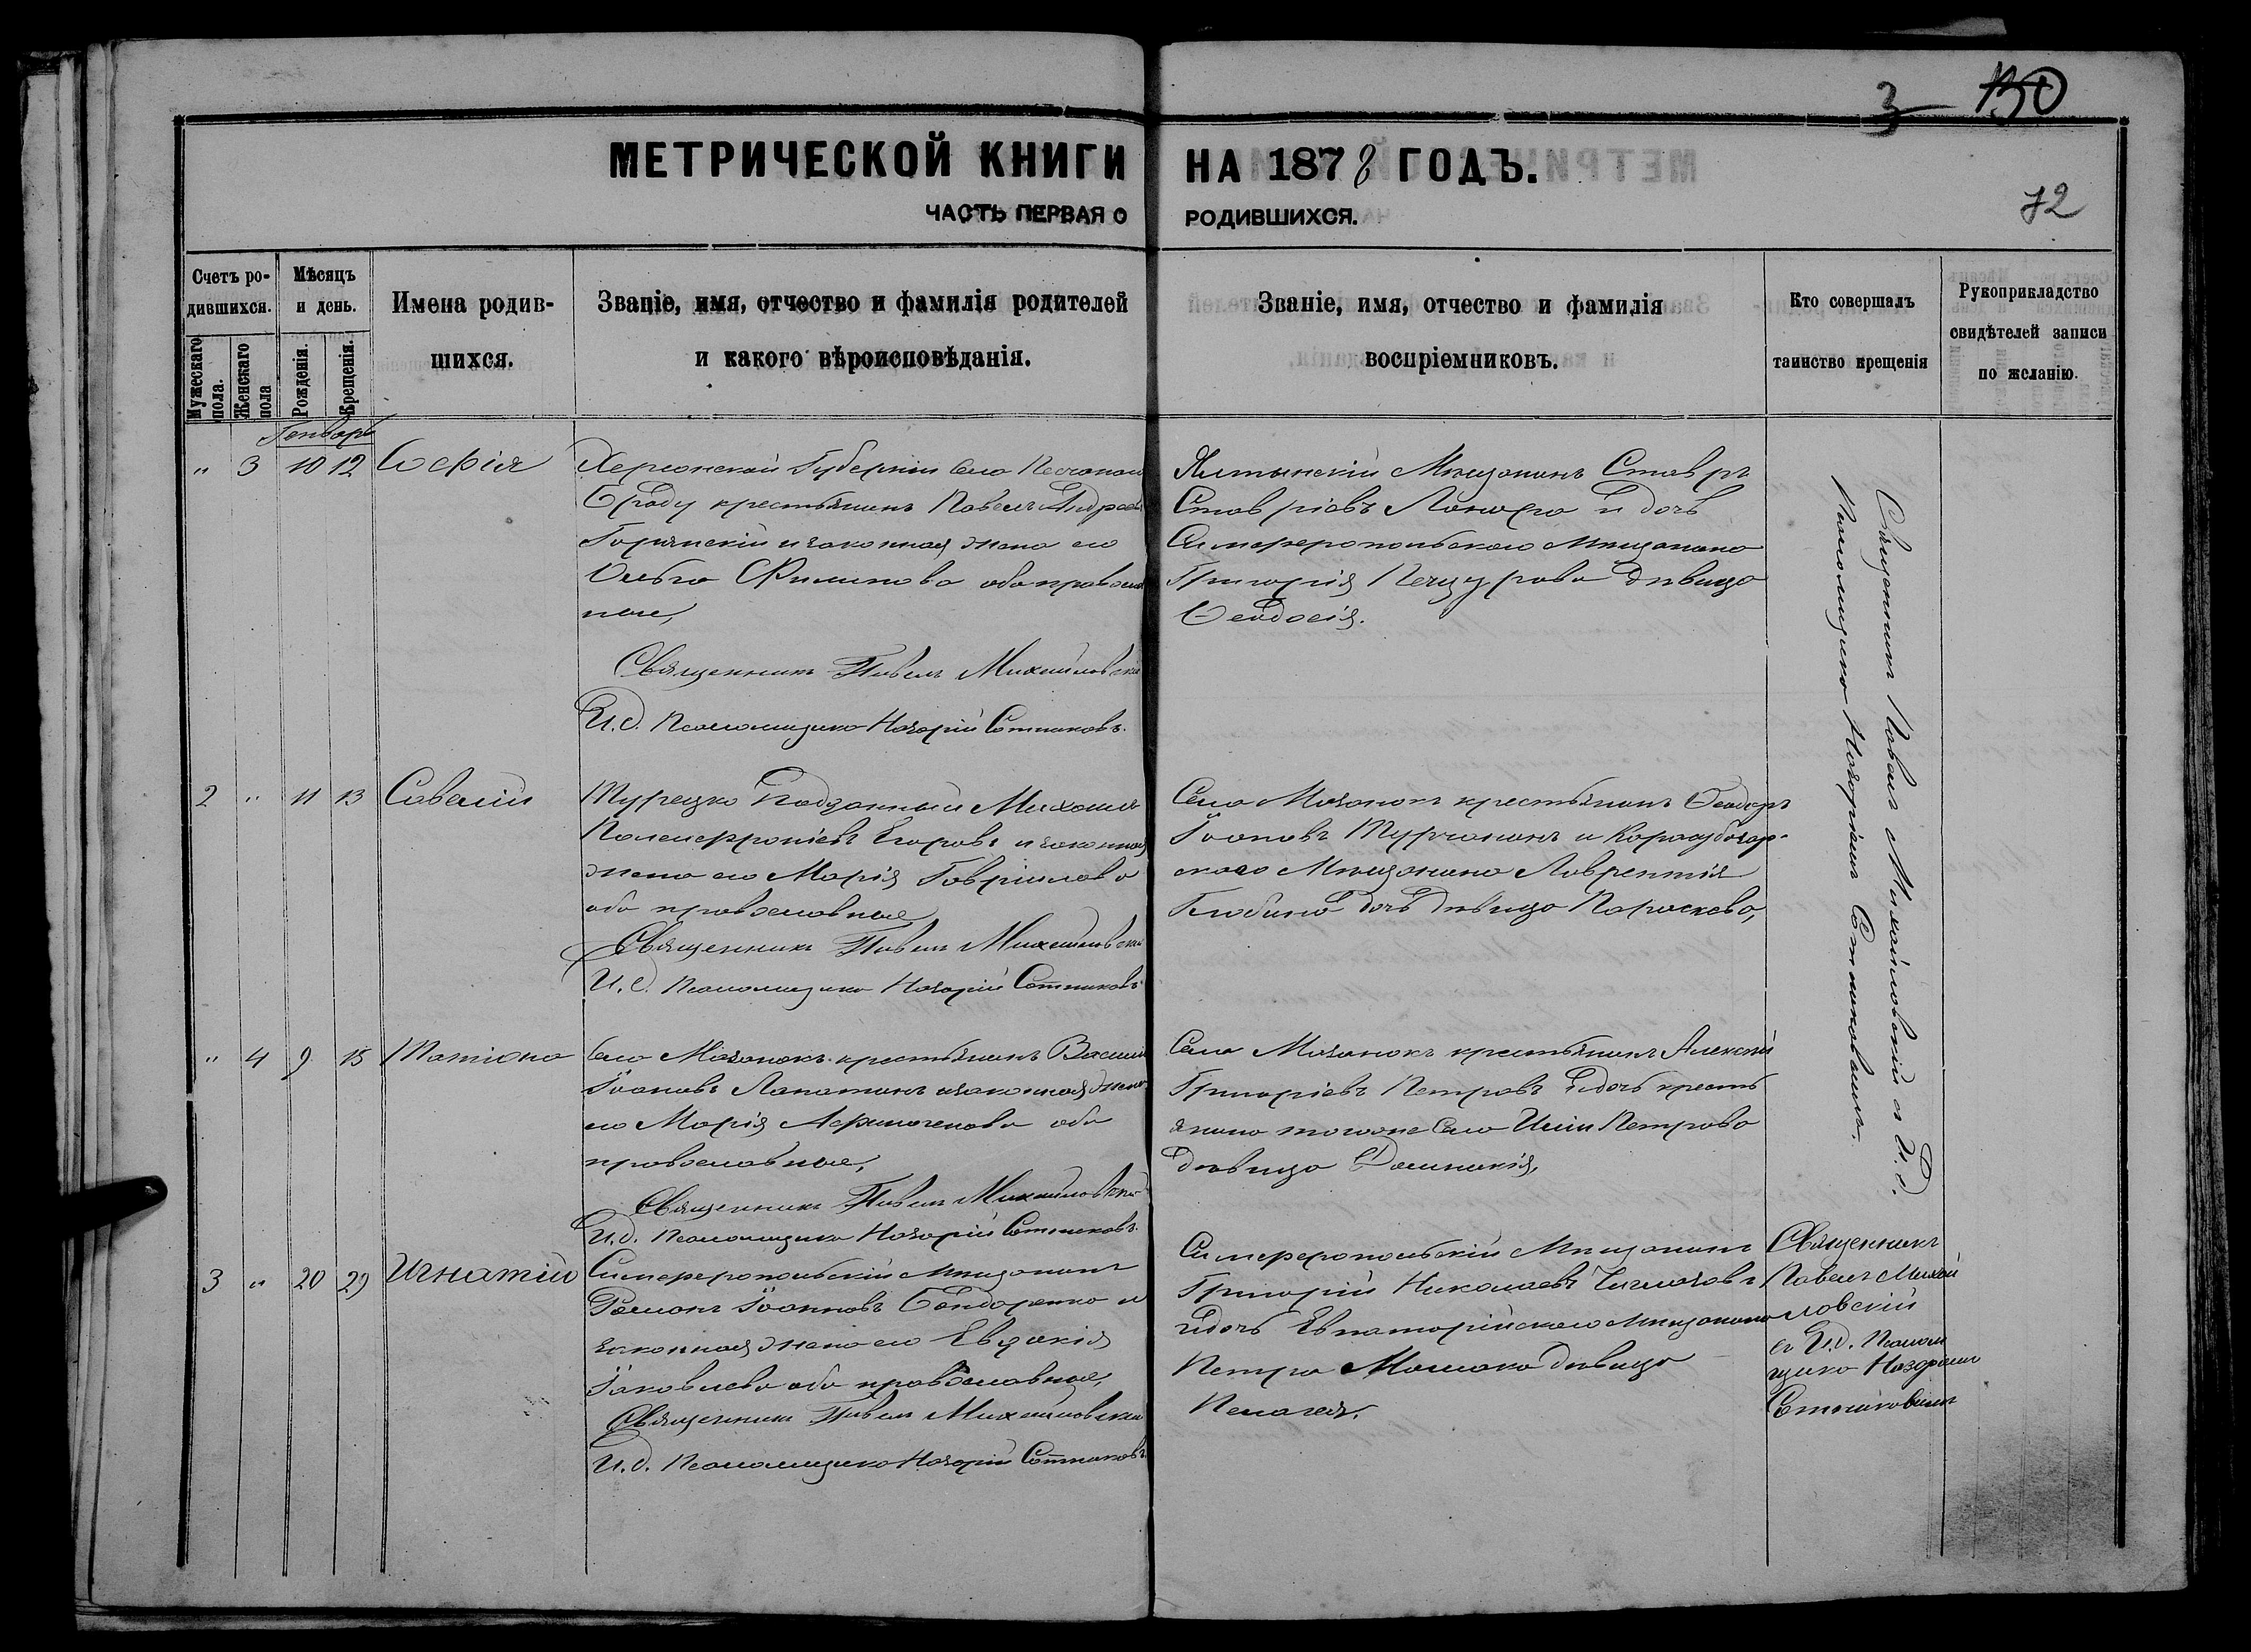 3 150
МЕТРИЧЕСКОЙ КНИГИ НА 1878 ГОДЪ.
72
ЧАСТЬ ПЕРВАЯ О РОДИВШИХСЯ.
Счетъ ро-
дившихся.
Мужескаго пола.
Женскаго пола
Мѣсяцъ
и день.
Рожденія.
Крещенія.
Имена родив-
шихся.
Званіе, имя, отчество и фамилія родителей
и какого вѣроисповѣданія.
Званіе, имя, отчество и фамилія
воспріемниковъ.
Кто совершалъ
таинство крещенія
Рукоприкладство
свидѣтелей записи
по желанію.
Генварь
" 3 10 12 Софія
Херсонской Губерніи Села
крестьянинъ Павелъ Андреевъ
и законная жена его
Ольга Филипова оба православ
ные,
Священникъ Павелъ Михайловскій
И.д. Псаломщика Назарій Сотниковъ.
Ялтынскій Мѣщанинъ Ставръ
Ставріевъ и дочь
Симферопольскаго Мѣщанина
Григорія дѣвица
Ѳеодосія.
2 " 11 13 Савелій
Турецко Подданный Михаилъ
Егоровъ и законная
жена его Марія Гавріилова
оба православные
Священникъ Павелъ Михайловскій
И.д. Псаломщика Назарій Сотниковъ
Села Мазанокъ крестьянинъ Ѳеодоръ
Іоановъ Турчанинъ и Карасубазар-
скаго Мѣщанина Лаврентія
дочь дѣвица Параскева,
" 4 9 15 Татіана
Села Мазанокъ крестьянинъ Василій
Іоановъ Лапатинъ и законная жена
его Марія Афиногенова оба
православные,
Священникъ Павелъ Михайловскій
И.д. Псаломщика Назарій Сотниковъ.
Села Мазанокъ крестьянинъ Алексѣй
Григоріевъ Петровъ и дочь кресть
янина тогоже Села Иліи Петрова
дѣвица Домникія,
Священникъ Павелъ Михайловскій съ И.д.
Псаломщика Назаріемъ Сотниковымъ.
3 " 20 29 Игнатій
Симферопольскій Мѣщанинъ
Романъ Іоанновъ Бондаренко и
законная жена его Евдокія
Іаковлева оба православные,
Священникъ Павелъ Михайловскій
И.д. Псаломщика Назарій Сотниковъ
Симферопольскій Мѣщанинъ
Григорій Николаевъ
и дочь Евпаторійскаго Мѣщанина
Петра дѣвица
Пелагея.
Священникъ
Павелъ Михай
ловскій
съ И.д. Псалом
щика Назаріемъ
Сотниковымъ